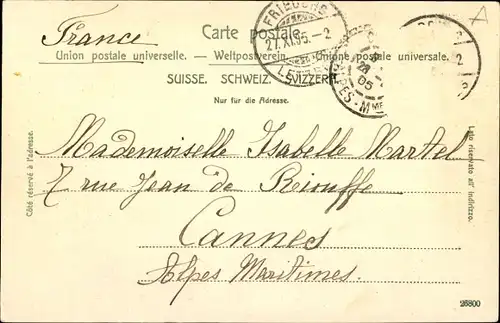 France
Carte postale.
Union postale universelle. — Weltpostverein. — Unione postale universale.
SUISSE. SCHWEIZ. SVIZZERA.
Nur für die Adresse.
FRIBOURG
27.XI.05.–2
LETTR
Côté réservé à l'adresse.
Lato riservato all' indirizzo.
Mademoiselle Isabelle Martel
7 rue Jean de Riouffe
Cannes
Alpes Maritimes.
26800